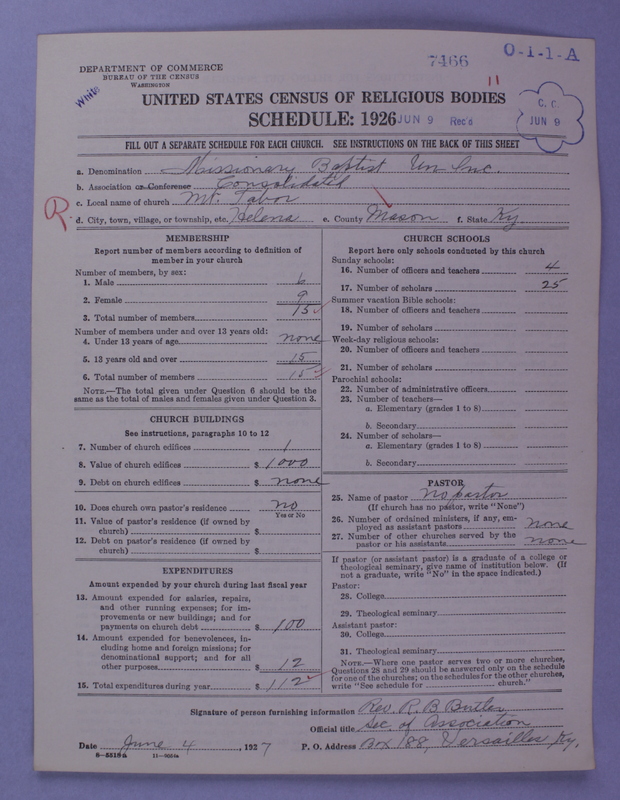 7466
O-i-1-A
DEPARTMENT OF COMMERCE
BUREAU OF THE CENSUS
WASHINGTON
White
11
UNITED STATES CENSUS OF RELIGIOUS BODIES
SCHEDULE: 1926 JUN 9 Rec'd
C. C.
JUN 9
FILL OUT A SEPARATE SCHEDULE FOR EACH CHURCH. SEE INSTRUCTIONS ON THE BACK OF THIS SHEET
a. Denomination Missionary Baptist Un Inc.
b. Association or Conference Consolidated
c. Local name of church Mt. Tabor
R
d. City, town, village, or township, etc. Helena e. County Mason f. State Ky.
MEMBERSHIP
Report number of members according to definition of
member in your church
Number of members, by sex:
1. Male 6
2. Female 9
3. Total number of members 15
Number of members under and over 13 years old:
4. Under 13 years of age none
5. 13 years old and over 15
6. Total number of members 15
NOTE.—The total given under Question 6 should be the
same as the total of males and females given under Question 3.
CHURCH BUILDINGS
See instructions, paragraphs 10 to 12
7. Number of church edifices 1
8. Value of church edifices $ 1000
9. Debt on church edifices $ none
10. Does church own pastor's residence no
Yes or No
11. Value of pastor's residence (if owned by
church) $
12. Debt on pastor's residence (if owned by
church) $
EXPENDITURES
Amount expended by your church during last fiscal year
13. Amount expended for salaries, repairs,
and other running expenses; for im-
provements or new buildings; and for
payments on church debt $ 100
14. Amount expended for benevolences, in-
cluding home and foreign missions; for
denominational support; and for all
other purposes $ 12
15. Total expenditures during year $ 112
CHURCH SCHOOLS
Report here only schools conducted by this church
Sunday schools:
16. Number of officers and teachers 4
17. Number of scholars 25
Summer vacation Bible schools:
18. Number of officers and teachers
19. Number of scholars
Week-day religious schools:
20. Number of officers and teachers
21. Number of scholars
Parochial schools:
22. Number of administrative officers
23. Number of teachers—
a. Elementary (grades 1 to 8)
b. Secondary
24. Number of scholars—
a. Elementary (grades 1 to 8)
b. Secondary
PASTOR
25. Name of pastor No pastor
(If church has no pastor, write "None")
26. Number of ordained ministers, if any, em-
ployed as assistant pastors none
27. Number of other churches served by the
pastor or his assistants none
If pastor (or assistant pastor) is a graduate of a college or
theological seminary, give name of institution below. (If
not a graduate, write "No" in the space indicated.)
Pastor:
28. College
29. Theological seminary
Assistant pastor:
30. College
31. Theological seminary
NOTE.—Where one pastor serves two or more churches,
Questions 28 and 29 should be answered only on the schedule
for one of the churches; on the schedules for the other churches,
write "See schedule for church."
Signature of person furnishing information Rev. R. B. Butler
Official title Sec. of Association
Date June 4, 1927 P. O. Address Box 188, Versailles, Ky.
8-5518a 11-9024a